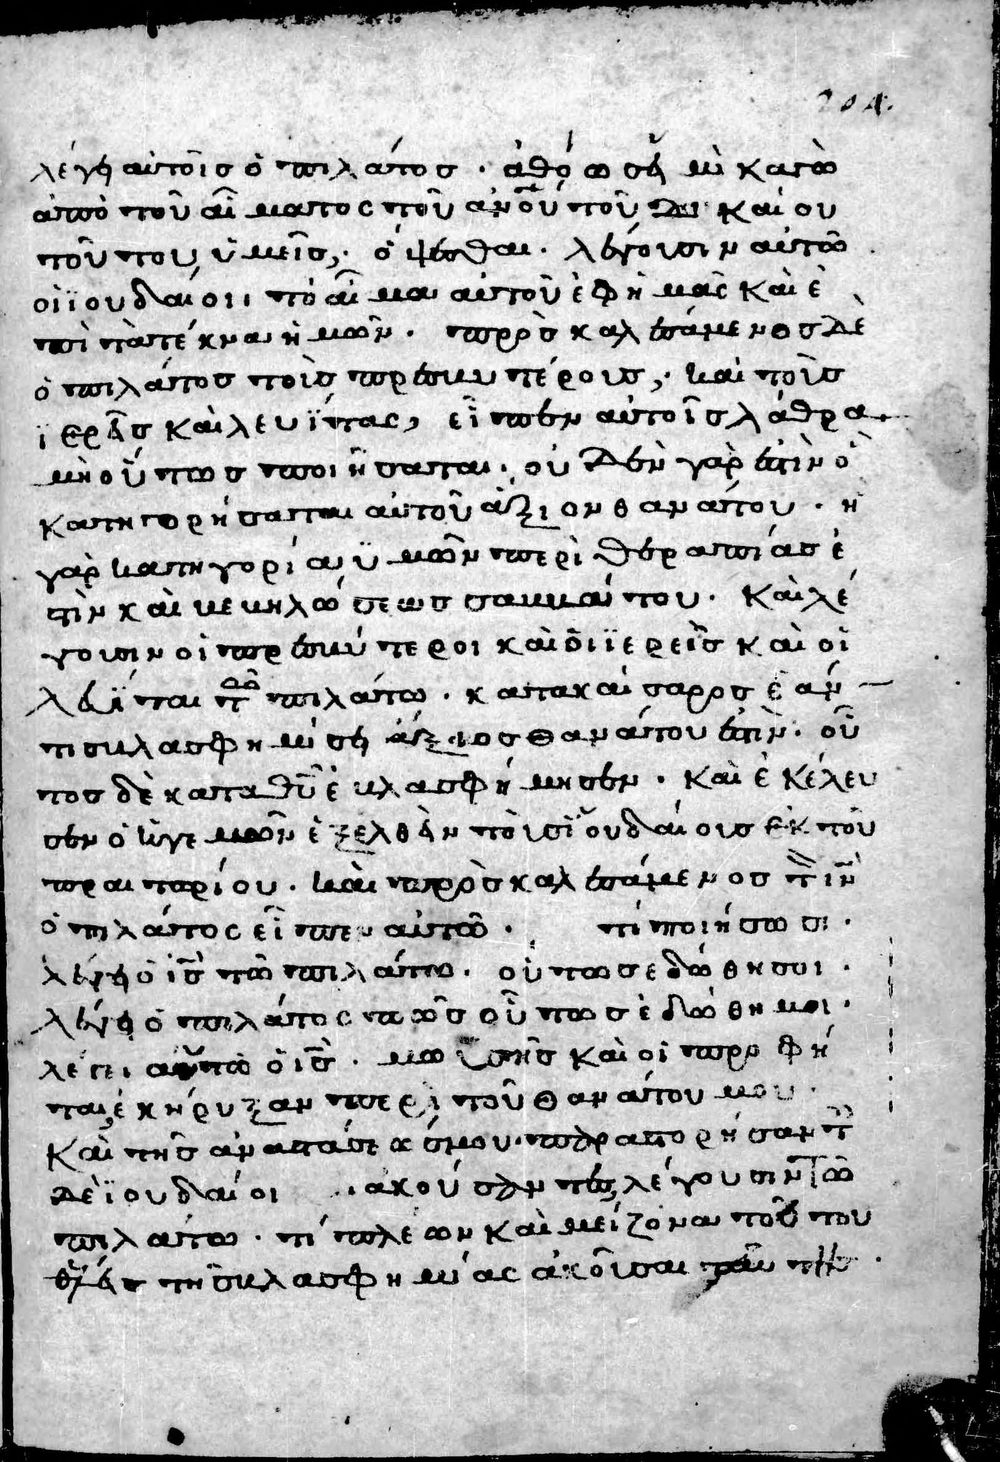 204.
λέγη αὐτοῖσ ὁ πιλάτοσ · ἀθόωσ ἠμὶ κἀγὼ
ἀπὸ τοῦ αἵματος τοῦ ἀνου τοῦ δικαίου
τοῦτου, ὑμεῖσ, · ὄψεσθαι · λέγουσιν αὐτῶ
οἱ ϊουδαίοι, τὸ αἷμα αὐτοῦ ἐφ ἡμᾶς καὶ ἐ
πὶ τὰ τέκνα ἡμῶν · προσκαλεσάμενοσ δὲ
ὁ πιλάτοσ τοῖσ πρεσβυτέρουσ, · καὶ τοῖσ
ϊερεῖσ καὶ λευΐτας, εἶπεν αὐτοῖσ λάθρα
μὴ οὕτωσ ποιήσαται · οὐδὲν γὰρ ἐστὶν ὃ
κατηγορήσαται αὐτοῦ ἄξιον θανάτου · ἡ
γὰρ κατηγορία ϋμῶν περὶ θεραπείασ ἐ
στὶν καὶ βεβηλώσεωσ σαββάτου · Καὶ λέ
γουσιν οἱ πρεσβύτεροι καὶ οἱ ϊερεῖσ καὶ οἱ
λεῖται τῶ πιλάτω · κατα καίσαροσ ἐάν
τισ βλασφημίση ἄξιοσ θανάτου ἐστὶν · οὗ
τοσ δὲ κατα θῦ ἐβλασφήμησεν · Καὶ ἐκέλευ
σεν ὁ ἡγεμῶν ἐξελθεῖν τοὶσ ϊουδαίοισ ἐκ τοῦ
πραιταρίου · καὶ προσκαλεσάμενοσ τ ιν
ὁ πιλάτος εἶπεν αὐτῶ · τί ποιήσω σι ·
λέγει ὁ ισ τῶ πιλάτω · οὕτωσ εδώθη σοι ·
λέγει ὁ πιλάτος πῶσ οὕτωσ ἐδώθη μοι ·
λέγει αὐτῶ ὁ ισ · μωϋσῆσ καὶ οἱ προφή
ται, ἐκήρυξαν περὶ τοῦ θανάτου μου ·
Καὶ τῆσ ἀναστάσεώσ μου · παρατορήσαντ
δὲ ϊουδαίοι ἀκούσαντες, λέγουσιν τῶ
πιλάτω · τί πλέων καὶ μείζονα τοῦτου
τῆσ βλασφημίας ἀκοῦσαι